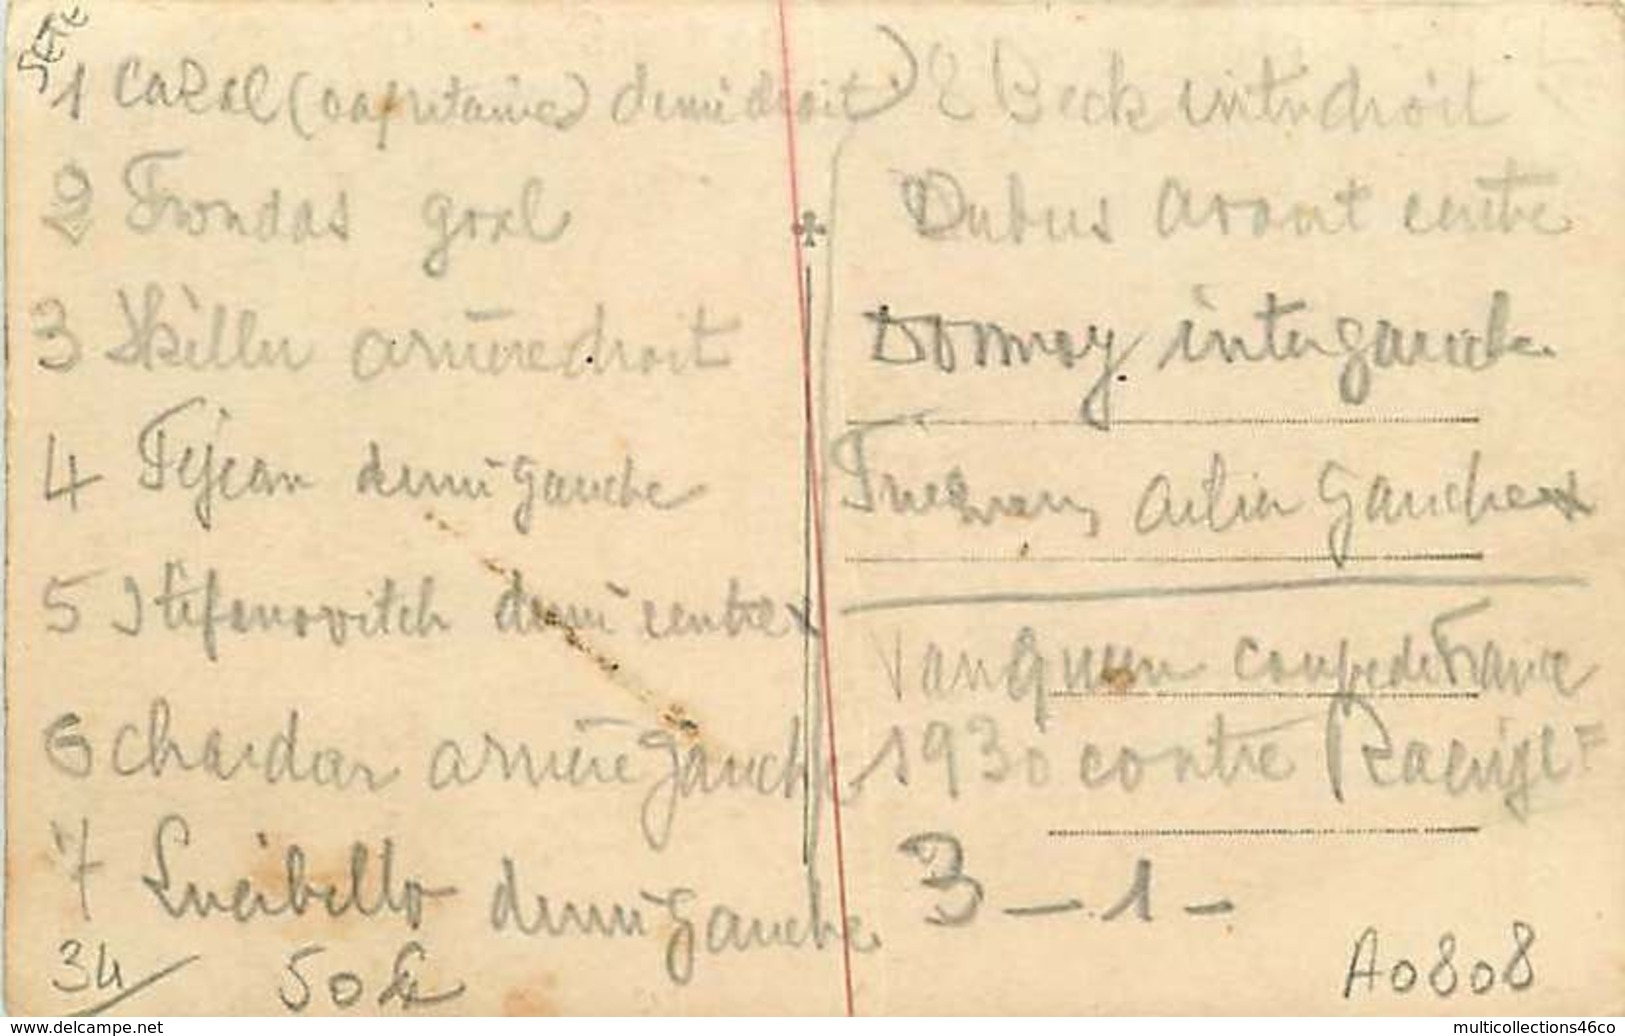 SETE
1 Cazal (capitaine) demi droit
2 Frondas goal
3 Skiller arrière droit
4 Fejean demi gauche
5 Stefanovitch demi centre x
6 Chardar arrière gauche
7 Lucibello demi gauche
34
50F
8 Beck inter droit
Dubus avant centre
Donnay inter gauche
Friedman ailier gauche x
Vanqueur coupe de France
1930 contre Racing CF
3 - 1 -
A0808
www.delcampe.net
multicollections46co